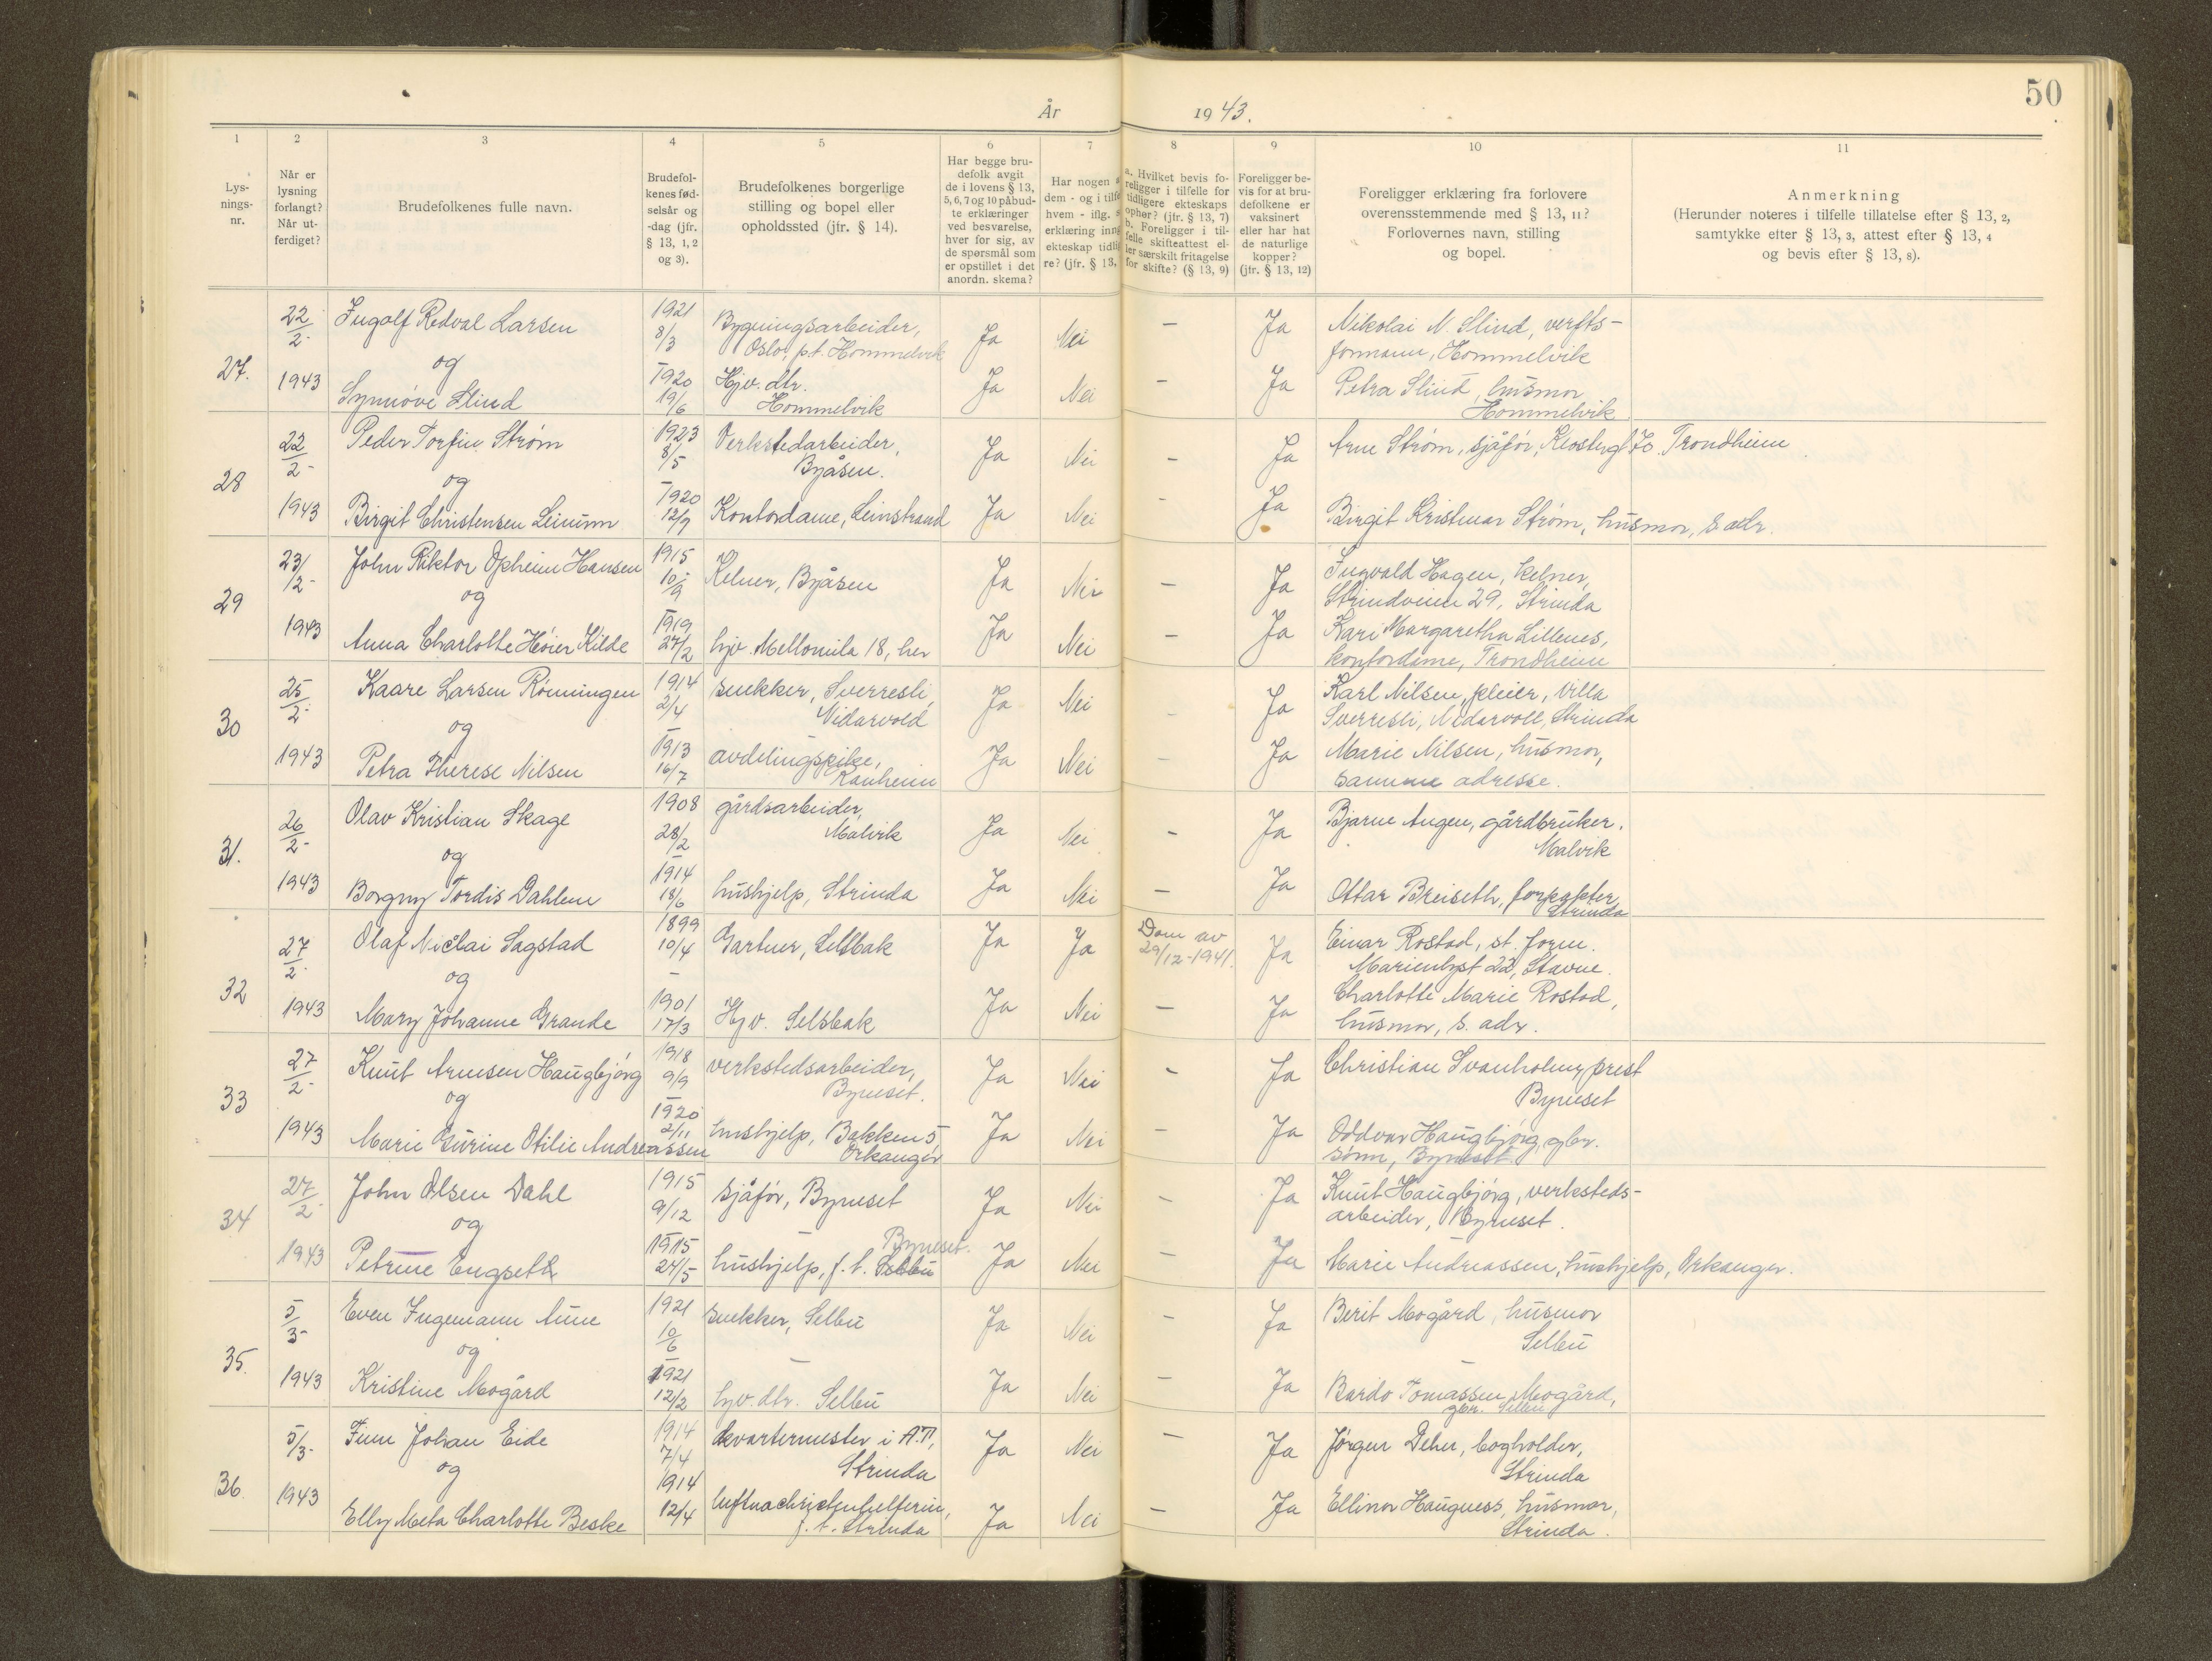 50
År 1943.
1 2 3 4 5 6 7 8 9 10 11
Lys-
nings-
nr.
Når er
lysning
forlangt?
Når ut-
ferdiget?
Brudefolkenes fulle navn.
Brudefol-
kenes fød-
selsår og
-dag (jfr.
§ 13, 1, 2
og 3).
Brudefolkenes borgerlige
stilling og bopel eller
opholdssted (jfr. § 14).
Har begge bru-
defolk avgit
de i lovens § 13,
5, 6, 7 og 10 påbud-
te erklæringer
ved besvarelse,
hver for sig, av
de spørsmål som
er opstillet i det
anordn. skema?
Har nogen a
dem - og i tilfe
hvem - iflg. s
erklæring inng
ekteskap tidlig
re? (jfr. § 13,
a. Hvilket bevis fo-
religger i tilfelle for
tidligere ekteskaps
ophør? (jfr. § 13, 7)
b. Foreligger i til-
felle skifteattest el-
ler særskilt fritagelse
for skifte? (§ 13, 9)
Foreligger be-
vis for at bru-
defolkene er
vaksinert
eller har hat
de naturlige
kopper?
(jfr. § 13, 12)
Foreligger erklæring fra forlovere
overensstemmende med § 13, 11?
Forlovernes navn, stilling
og bopel.
Anmerkning
(Herunder noteres i tilfelle tillatelse efter § 13, 2,
samtykke efter § 13, 3, attest efter § 13, 4
og bevis efter § 13, 8).
27. 22/2- 1943
Ingolf Redval Larsen 1921 8/3 Bygningsarbeider, Oslo, p.t. Hommelvik Ja Nei — Ja Nikolai N. Slind, verfts-
formann, Hommelvik
og
Synnøve Slind 1920 19/6 Hjv. dtr. Hommelvik Ja Nei — Ja Petra Slind, husmor
Hommelvik
28 22/2- 1943
Peder Torfinn Strøm 1923 8/5 Verkstedarbeider, Byåsen. Ja Nei — Ja Arne Strøm, sjåfør, Trondheim
og
Birgit Christensen Leinum 1920 12/9 Kontordame, Leinstrand Ja Nei - Ja Birgit Kristmar Strøm, husmor, s. adr.
29 23/2- 1943
John Opheim Hansen 1915 10/9 Kelner, Byåsen Ja Nei — Ja Ingvald Hagen, kelner,
Strindveien 29, Strinda
og
Anna Charlotte Høier Kilde 1919 27/2 hjv. Mellomila 18, her Ja Nei — Ja Kari Margaretha Lillenes,
kontordame, Trondheim
30 25/2- 1943
Kaare Larsen Rønningen 1914 2/4 snekker, Sverresli, Nidarvold Ja Nei - Ja Karl Nilsen, pleier, Villa
Sverresli, Nidarvoll, Strinda
og
Petra Therese Nilsen 1913 16/7 avdelingspike, Ranheim Ja Nei - Ja Marie Nilsen, husmor,
samme adresse.
31. 26/2- 1943
Olav Kristian Skage 1908 28/2 gårdsarbeider, Malvik Ja Nei - Ja Bjarne Augen, gårdbruker.
Malvik
og
Borgny Tordis Dahlen 1914 18/6 hushjelp, Strinda Ja Nei — Ja Ottar Breiseth, forpakter
Strinda
32 27/2- 1943
Olaf Nicolai Sagstad 1899 10/4 Gartner, Selsbak Ja Ja Dom av 29/12-1941. Ja Einar Rostad, st. form.
Marienlyst 22, Stavne.
og
Mary Johanne Grande 1901 17/3 Hjv. Selsbak Ja Nei — Ja Charlotte Marie Rostad,
husmor, s. adr.
33 27/2- 1943
Knut Arnesen Haugbjørg 1918 9/9 verkstedsarbeider, Byneset. Ja Nei - Ja Christian Svanholm, prest
Byneset
og
Marie Gurine Otilie Andreassen 1920 2/11 hushjelp, Bakken 5, Orkanger Ja Nei - Ja Oddvar Haugbjørg, gbr.
sønn, Byneset.
34 27/2- 1943
John Olsen Dahl 1915 9/12 sjåfør, Byneset Ja Nei - Ja Knut Haugbjørg, verksteds-
arbeider, Byneset.
og
Petrine Engseth 1915 24/5 hushjelp, f. t. Selbu Byneset. Ja Nei — Ja Marie Andreassen, hushjelp, Orkanger.
35. 5/3- 1943
Even Ingemann Aune 1921 10/6 snekker, Selbu Ja Nei — Ja Berit Mogård, husmor
Selbu
og
Kristine Mogård 1921 12/2 hjv. dtr. Selbu Ja Nei - Ja Bardo Tomassen Mogård,
gbr. Selbu
36. 5/3- 1943
Finn Johan Eide 1914 7/4 kvartermester i A.T., Strinda Ja Nei — Ja Jørgen Dehn, bogholder,
Strinda
og
Elly Meta Charlotte Beske 1914 12/4 luftnachrichtenhelferin, f. t. Strinda Ja Nei — Ja Ellinor Haugness, husmor,
Strinda.